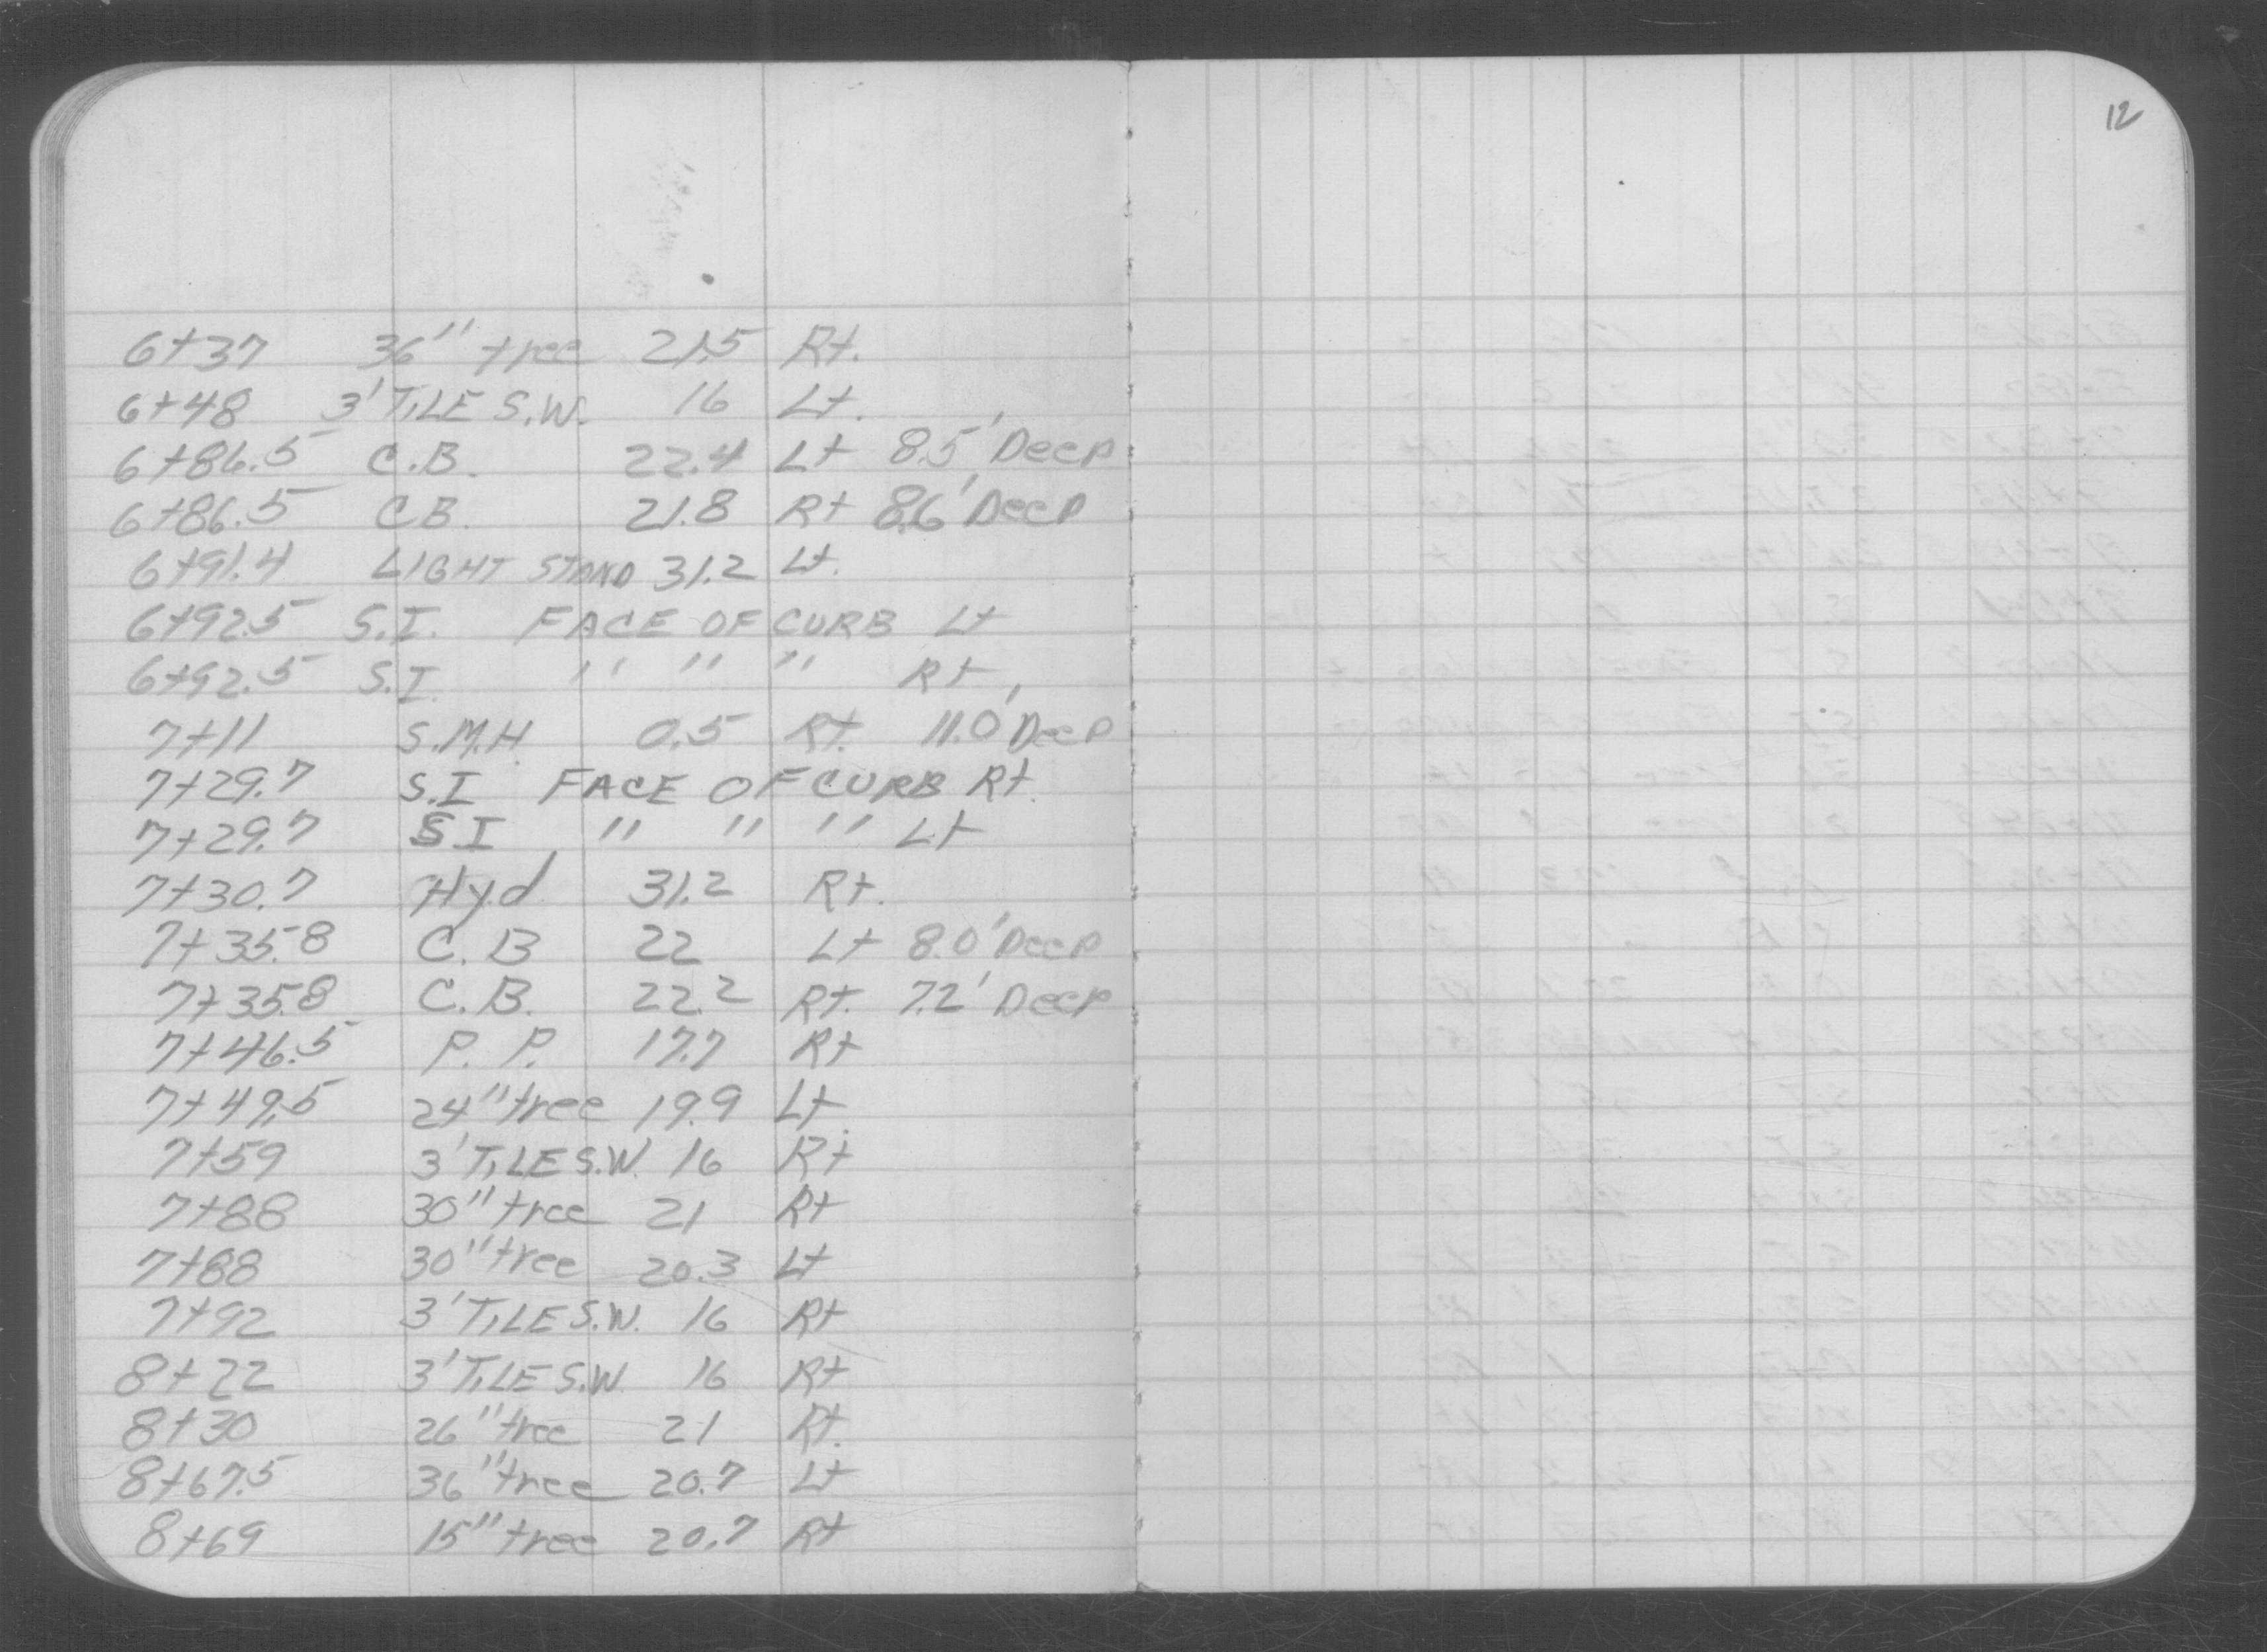 12
6+37 36" tree 21.5 Rt.
6+48 3' TILE S.W. 16 Lt.
6+86.5 C.B. 22.4 Lt 8.5' Deep
6+86.5 C.B. 21.8 Rt 8.6' Deep
6+91.4 LIGHT STAND 31.2 Lt.
6+92.5 S.I. FACE OF CURB Lt
6+92.5 S.I. " " " Rt
7+11 S.M.H. 0.5 Rt. 11.0' Deep
7+29.7 S.I FACE OF CURB Rt.
7+29.7 S I " " " Lt
7+30.7 Hyd 31.2 Rt.
7+35.8 C.B 22 Lt 8.0' Deep
7+35.8 C.B. 22.2 Rt. 7.2' Deep
7+46.5 P.P. 17.7 Rt
7+49.5 24" tree 19.9 Lt.
7+59 3' TILE S.W. 16 Rt
7+88 30" tree 21 Rt
7+88 30" tree 20.3 Lt
7+92 3' TILE S.W. 16 Rt
8+22 3' TILE S.W. 16 Rt
8+30 26" tree 21 Rt.
8+67.5 36" tree 20.7 Lt
8+69 15" tree 20.7 Rt